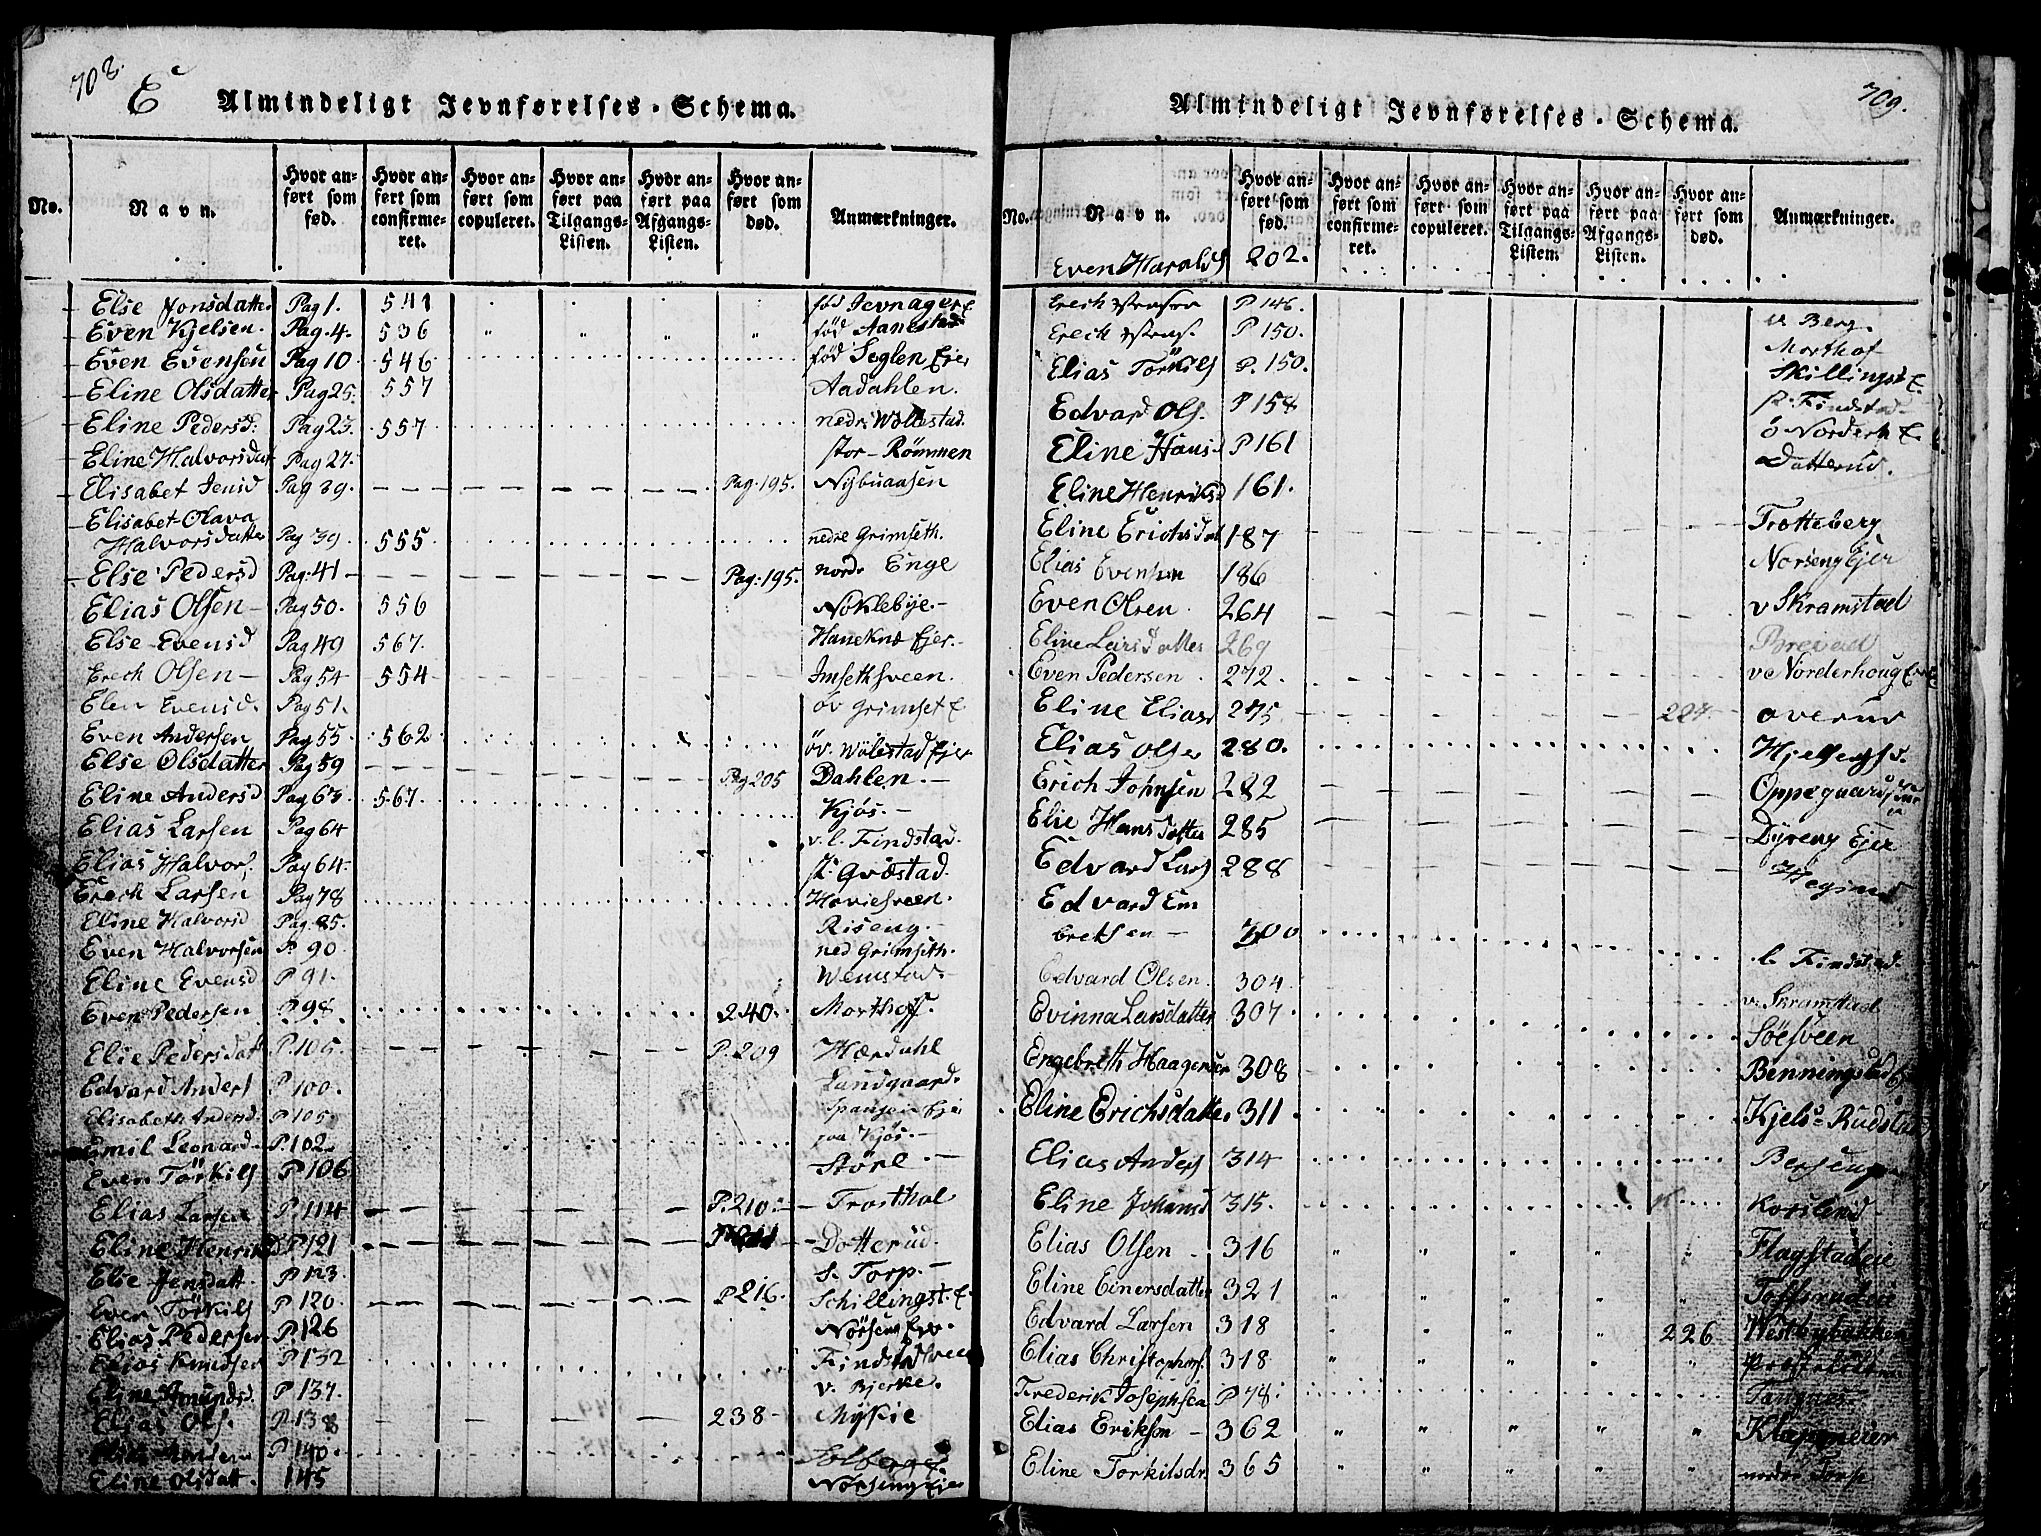 708.
E
Almindeligt Jevnførelses-Schema.
No.
Navn.
Hvor anført som fød.
Hvor anført som confirmeret.
Hvor anført som copuleret.
Hvor anført paa Tilgangs-Listen.
Hvor anført paa Afgangs-Listen.
Hvor anført som død.
Anmærkninger.
Else Jonsdatter Pag 1. 541 fød Jevnager E
Even Kjelsen. Pag 4. 536 fød Aanestad
Even Evensen Pag 10 546 fød Seglen Ejer
Eline Olsdatter Pag 25. 557 Aadahlen.
Eline Pedersd: Pag 23. 557 nedr. Wollestad.
Eline Halvorsdat Pag 27. stor-Römmen
Elisabet Jensd Pag 39. Pag. 195. Nybuaasen
Elisabet-Olava
Halvorsdatter Pag 39. 555 nedre Grimseth.
Else Pedersd Pag. 41 Pag. 195. nordr Enge
Elias Olsen Pag 50. 556 Noklebye.
Else Evensd Pag 49 567. Hanekne Ejer.
Erech Olsen Pag 54 554 Imsethsveen.
Elen Evensd. Pag 51. öv Grimset E
Even Andersen Pag 55 562 öv. Wölestad Ejer
Else Olsdatter Pag 59 Pag 205 Dahlen.
Eline Andersd Pag 63. 567. Kjös.
Elias Larsen Pag 64 v. l. Findstad.
Elias Halvors. Pag 64. st. Qvæstad.
Erech Larsen Pag 78 Hoviesveen.
Eline Halvorsd Pag. 85. Riseng.
Even Halvorsen P. 90 ned Grimseth.
Eline Evensd P. 91. Wemstad
Even Pedersen P. 98 240. Morthoff.
Elie Pedersdat P. 105. P. 209 Hærdahl
Edvard Anders P. 100. Landgaard.
Elisabeth Andersd. P. 105
Emil Leonard P. 102. paa Kjös.
Even Törkils P 106 Störl
Elias Larsen P. 114 P. 210. Frosthol
Eline Henriksd P 121 P 211 Dotterud.
Elie Jensdatt. P 123. S. Torp.
Even Törkils P 120. P 216. Schillingst. E
Elias Pedersen P. 126
Elias Knudsen P 132 Findstadsveen
Eline Amundsd. P 137. v. Bjerke.
Elias Ols. P. 138 238 Mykie
P 140. Solberg E.
Eline Olsdatt. 145 Norseng Ejer
Almindeligt Jevnførelses-Schema.
709.
No.
Navn.
Hvor anført som fød.
Hvor anført som confirmeret.
Hvor anført som copuleret.
Hvor anført paa Tilgangs-Listen.
Hvor anført paa Afgangs-Listen.
Hvor anført som død.
Anmærkninger.
Even Haralds 202.
Erech P 146. v Berg.
Erech P 150. Morthof
Elias Törkils P. 150. Skillingst E.
Edvard Ols. P 158 st. Findstad
Eline Hansd P 161 ö Norderh E.
Eline Henriksd 161. Dotterud.
Eline Erichsdat 187 Frotteberg
Elias Evensen 186 Norseng Ejer
Even Olsen 264 v Skramstad
Eline Larsdatter 269
Even Pedersen 272. ve Norderhoug Eie
Eline Eliasd 275 227 overud
Elias Olsen 280.
Erich Johnsen 282 Oppegaard
Elie Hansdatter 285 Dyreng Ejer
Edvard Lars 288
Edvard Em
bretsen 300 l. Findstad.
Edvard Olsen. 304 v. Skramstad
Evinna Larsdatter 307 Söesveen
Engebreth Haagensen 308 Benningstad E
Eline Erichsdatter 311 Kjels-Rudstad
Elias Anders 314 Berseng
Eline Johansd 315. Korslund
Elias Olsen 316 Flagstadeie
Eline Einersdatter 321 Toffsrudeie
Edvard Larsen 318 226 Westbybakken
Elias Christophers. 318
Frederik Josephsen P 78. Tangnes
Elias Erikson 362 Klapmeier
Eline Torkilsdr. 365 nedre Torp